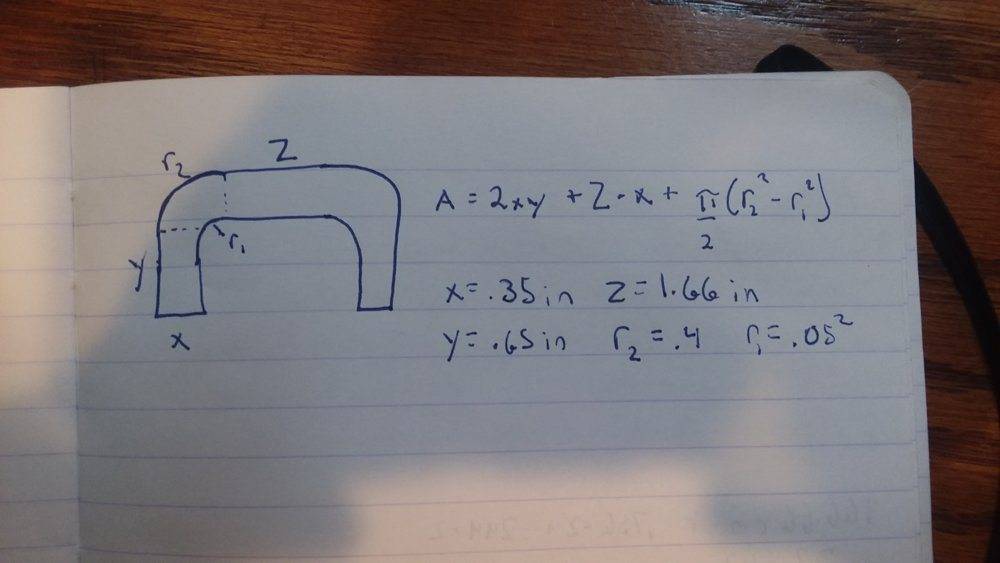 r₂ Z
A = 2xy + Z·x + π/2 (r₂² - r₁²)
r₁
y
x = .35in Z = 1.66in
y = .65in r₂ = .4 r₁ = .05²
x